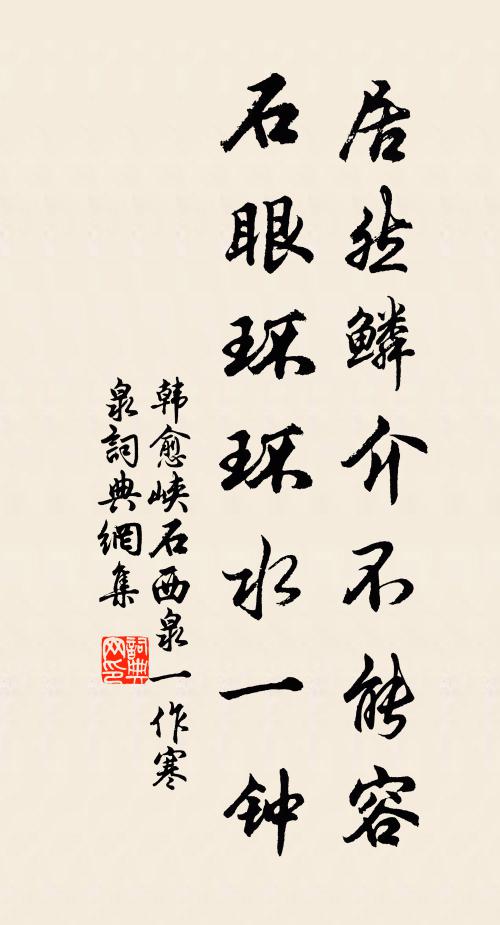 居然鳞介不能容
石眼环环水一钟
韩愈峡石西泉一作寒
泉詞典網集
詞典
网印